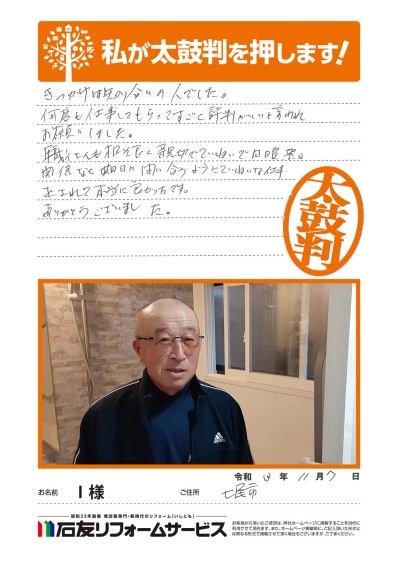 私が太鼓判を押します!
きっかけは知り合いの人でした。
何名も仕事してもらってすごく評判がいいと言われ
お願いしました。
職人さんも根気良く親切でていねいで日曜祭日
関係なく期日に間に合うようにていねいな仕事
をされて本当に良かったです。
ありがとうございました。
太鼓判
adidas
令和 年 11月 7日
お名前 I様 ご住所 七尾市
昭和33年創業 増改築専門・新時代のリフォーム[いしとも]
石友リフォームサービス
お客様から頂いたご感想は、弊社ホームページに掲載することを目的に
利用させて頂きます。また、ホームページ掲載時に、ご記入頂いた形式と
は異なる形式で掲載させて頂く場合もございますが、ご了承ください。